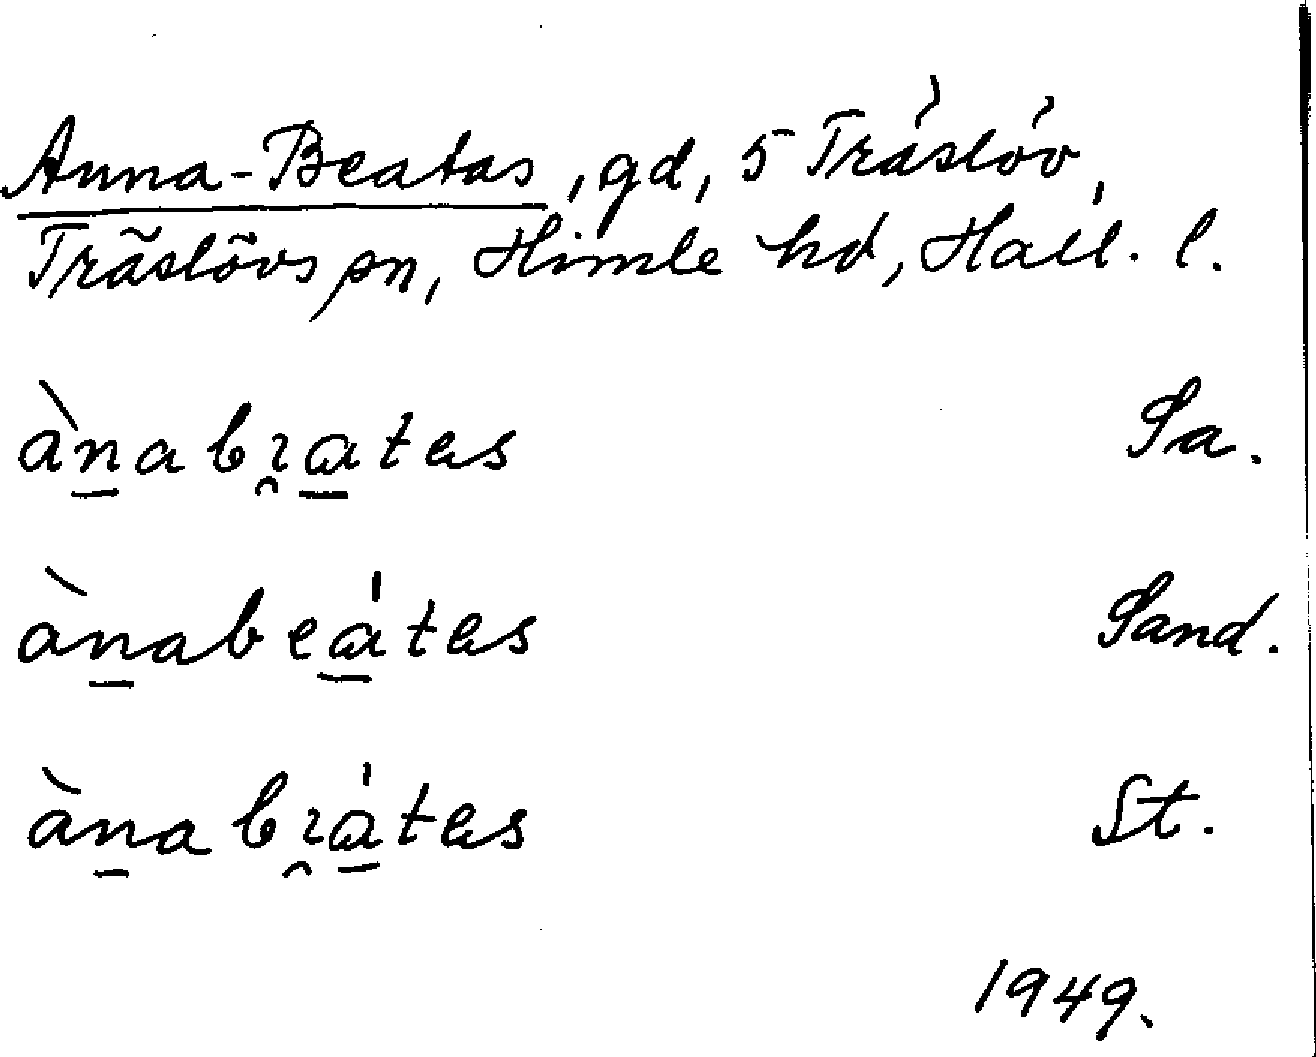 Anna-Beatas, gd, 5 Träslöv,
Träslövs sn, Himle hd, Hall. l.
ànabı̯atas Sa.
ànabeátas Sand.
ànabı̯átas St.
1949.